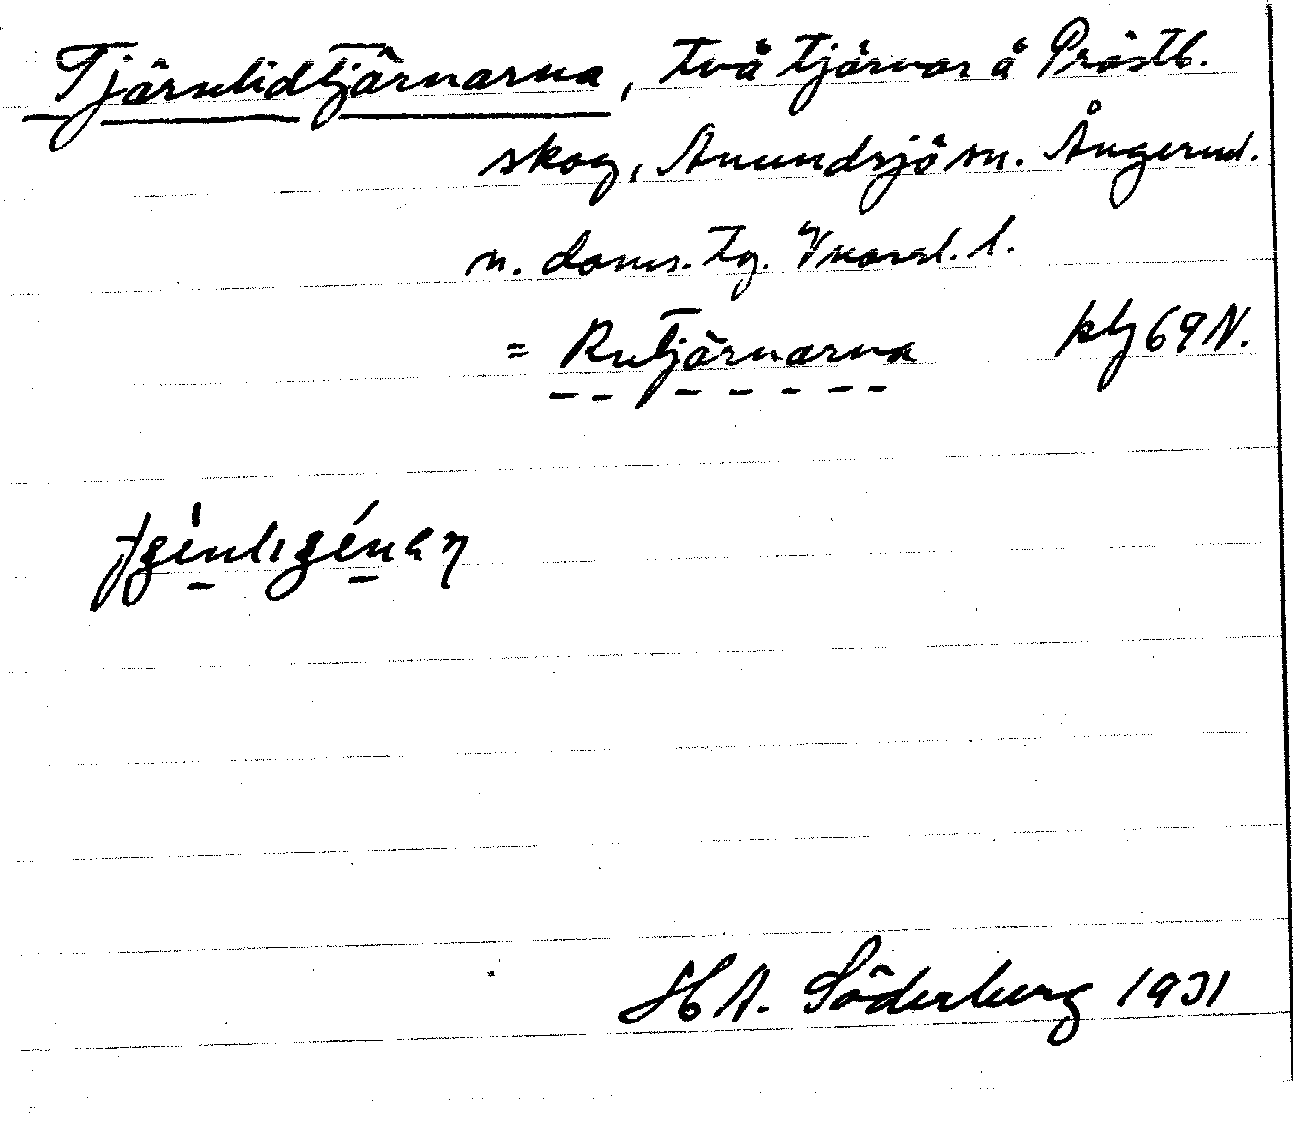 Tjärnlidtjärnarna, två tjärnar å Prästb.
skog, Anundsjö sn. Ångerml.
n. doms. tg. Vnorrl. l.
= Rutjärnarna ktg 69 N.
H A. Söderberg 1931